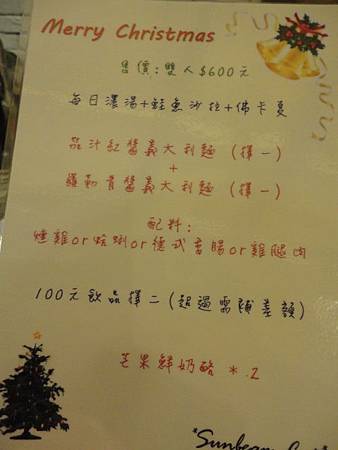 Merry Christmas
售價:雙人$600元
每日濃湯+鮭魚沙拉+佛卡夏
茄汁紅醬義大利麵 (擇一)
+
羅勒青醬義大利麵 (擇一)
配料:
燻雞or蛤蜊or德式香腸or雞腿肉
100元飲品擇二(超過需補差額)
芒果鮮奶酪 *.2
"Sunbeam